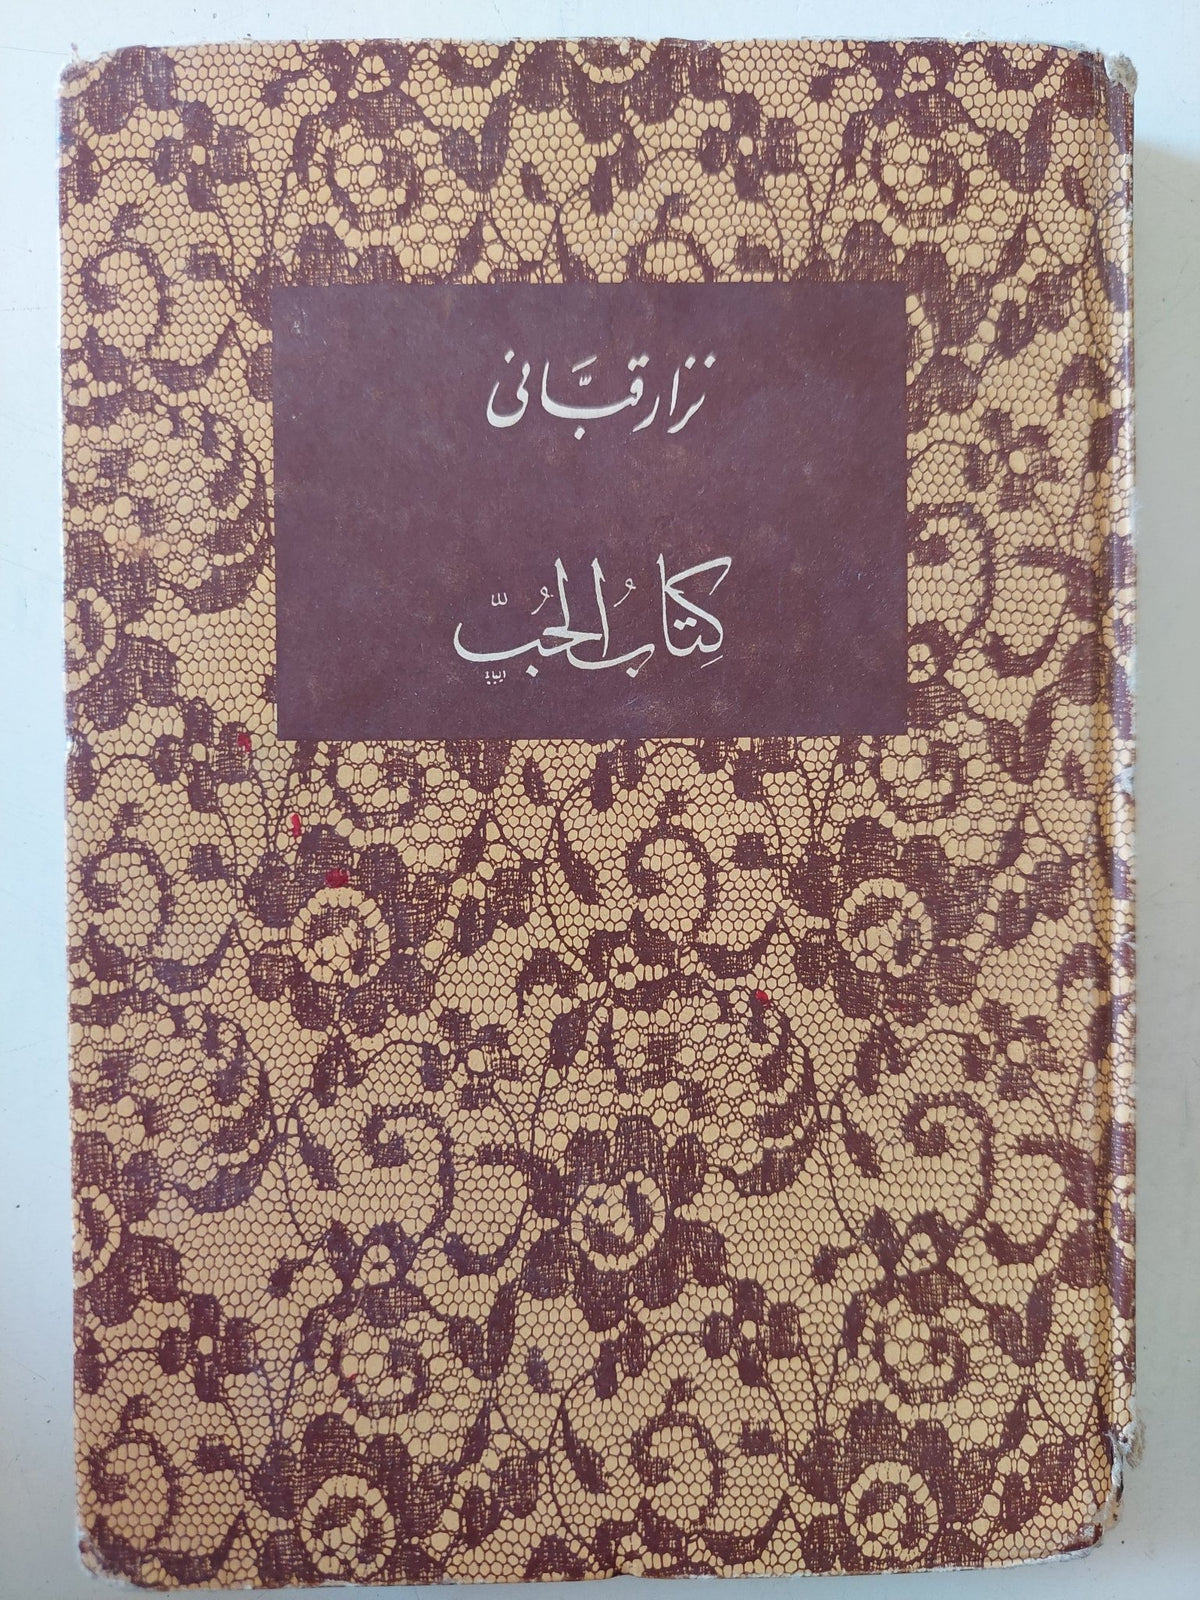 نزار قبَّانى
كِتابُ الحُبّ